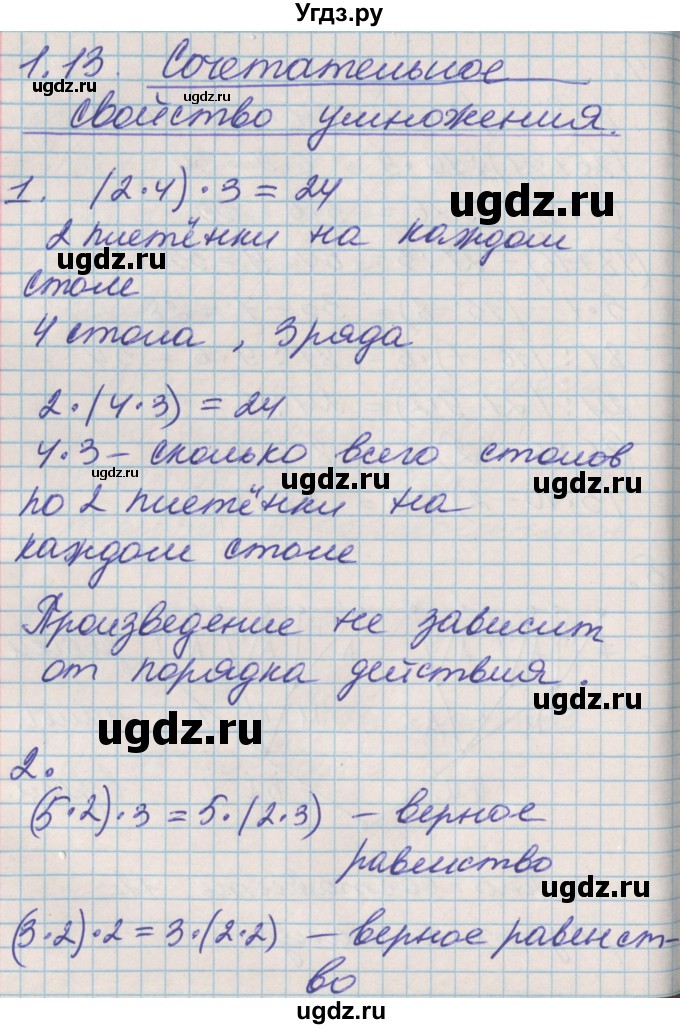 Угдз.ру
1.13. Сочетательное
ugdz.ru ugdz.ru
свойство умножения.
ugdz.ru
1. (2·4)·3 = 24
ugdz.ru
2 плетёнки на каждом
ugdz.ru
столе
4 стола, 3 ряда
2·(4·3) = 24
4·3 – сколько всего столов
ugdz.ru ugdz.ru ugdz.ru
по 2 плетёнки на
ugdz.ru
каждом столе
Произведение не зависит
ugdz.ru
от порядка действия.
ugdz.ru
ugdz.ru
2.
(5·2)·3 = 5·(2·3) – верное
равенство
ugdz.ru
(3·2)·2 = 3·(2·2) – верное равенст-
во
ugdz.ru
ugdz.ru